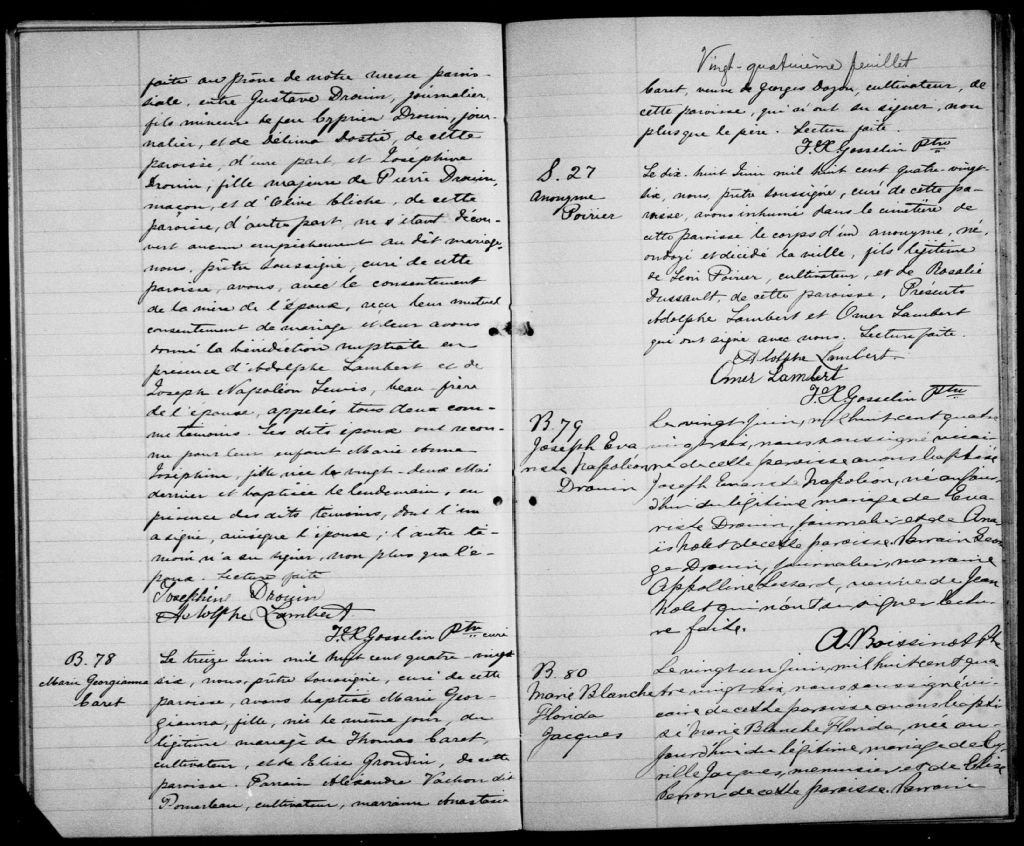 faite au prône de notre messe parois-
siale, entre Gustave Drouin, journalier,
fils mineur de feu Cyprien Drouin, jour-
nalier, et de Délima Dostie, de cette
paroisse, d'une part, et Joséphine
Drouin, fille majeure de Pierre Drouin,
maçon, et d'Olive Cliche, de cette
paroisse, d'autre part, ne s'étant décou-
vert aucun empêchement au dit mariage,
nous, prêtre soussigné, curé de cette
paroisse, avons, avec le consentement
de la mère de l'époux, reçu leur mutuel
consentement de mariage et leur avons
donné la bénédiction nuptiale en
présence d'Adolphe Lambert et de
Joseph Napoléon Lewis, beau-frère
de l'épouse, appelés tous deux com-
me témoins. Les dits époux ont recon-
nu pour leur enfant Marie Anna
Joséphine, fille née le vingt-deux Mai
dernier et baptisée le lendemain, en
présence des dits témoins, dont l'un
a signé, ainsi que l'épouse; l'autre té-
moin n'a su signer, non plus que l'é-
poux. Lecture faite
Joséphin Drouin
Adolphe Lambert
J. X Gosselin Ptre curé
B. 78
Marie Georgianna
Caret
Le treize Juin mil huit cent quatre-vingt
six, nous, prêtre soussigné, curé de cette
paroisse, avons baptisé Marie Geor-
gianna, fille, née le même jour, du
légitime mariage de Thomas Caret,
cultivateur, et de Elise Grondin, de cette
paroisse. Parrain Alexandre Vachon dit
Pomerleau, cultivateur, marraine Anastasie
Vingt-quatrième feuillet
Caret, veuve de Georges Doyon, cultivateur, de
cette paroisse, qui n'ont su signer, non
plus que le père. Lecture faite.
J. X Gosselin Ptre
S. 27
Anonyme
Poirier
Le dix-huit Juin mil huit cent quatre-vingt-
six, nous, prêtre soussigné, curé de cette pa-
roisse, avons inhumé dans le cimetière de
cette paroisse le corps d'un anonyme, né,
ondoyé et décédé la veille, fils légitime
de Léon Poirier, cultivateur, et de Rosalie
Dussault, de cette paroisse. Présents
Adolphe Lambert et Omer Lambert
qui ont signé avec nous. Lecture faite.
Adolphe Lambert
Omer Lambert
J. X Gosselin Ptre
B. 79
Joseph Eva
riste Napoléon
Drouin
Le vingt Juin, mil huit cent quatre
vingt six, nous soussigné vicai-
re de cette paroisse avons baptisé
Joseph Evariste Napoléon, né aujour-
d'hui du légitime mariage de Eva
riste Drouin, journalier et de Ana
is Nolet de cette paroisse. Parrain Geor
ge Drouin, journalier, marraine
Appolline Lessard, veuve de Jean
Nolet qui n'ont su signer. Lectu-
re faite.
A. Boissinot Ptr
B. 80
Marie Blanche
Florida
Jacques
Le vingt un Juin, mil huit cent qua
tre vingt six, nous soussigné vi-
caire de cette paroisse avons bapti
sé Marie Blanche Florida, née au-
jourd'hui du légitime mariage de Cy-
rille Jacques, menuisier et de Elise
Perron de cette paroisse. Parrain